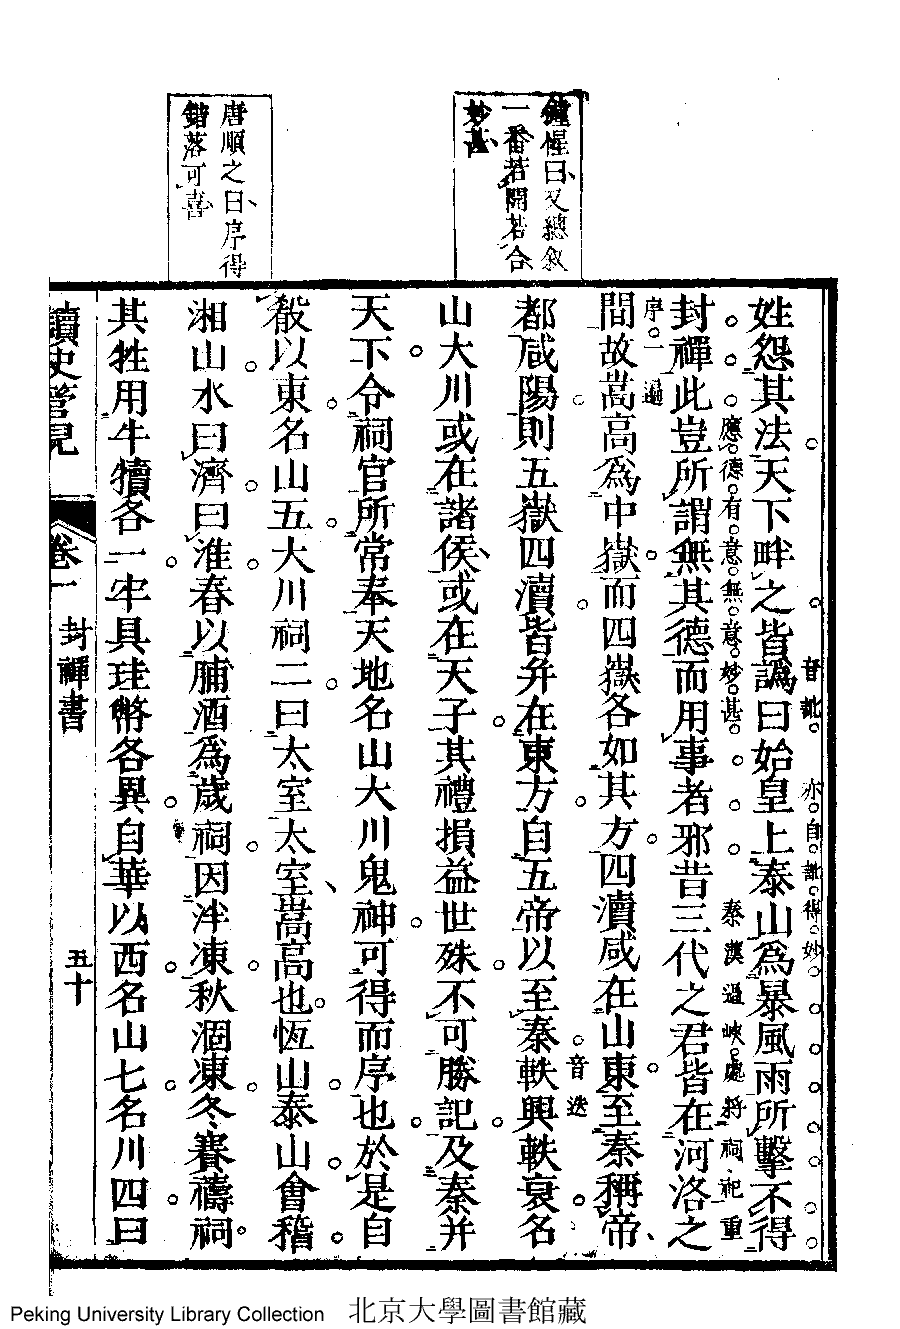 鍾惺曰又總敘
一番若開若合
妙甚
唐順之曰序得
錯落可喜
音訛 亦自訛得妙
姓怨其法天下畔之皆譌曰始皇上泰山為暴風雨所擊不得
應德有意無意妙甚 秦漢過峽處將祠祀重
封禪此豈所謂無其德而用事者邪昔三代之君皆在河洛之
序一遍
間故嵩高為中嶽而四嶽各如其方四瀆咸在山東至秦稱帝
音迭
都咸陽則五嶽四瀆皆并在東方自五帝以至秦軼興軼衰名
山大川或在諸侯或在天子其禮損益世殊不可勝記及秦并
天下令祠官所常奉天地名山大川鬼神可得而序也於是自
殽以東名山五大川祠二曰太室太室嵩高也恆山泰山會稽
湘山水曰濟曰淮春以脯酒為歲祠因泮凍秋涸凍冬賽禱祠
其牲用牛犢各一牢具珪幣各異自華以西名山七名川四曰
讀史管見 卷一 封禪書 五十
Peking University Library Collection 北京大學圖書館藏